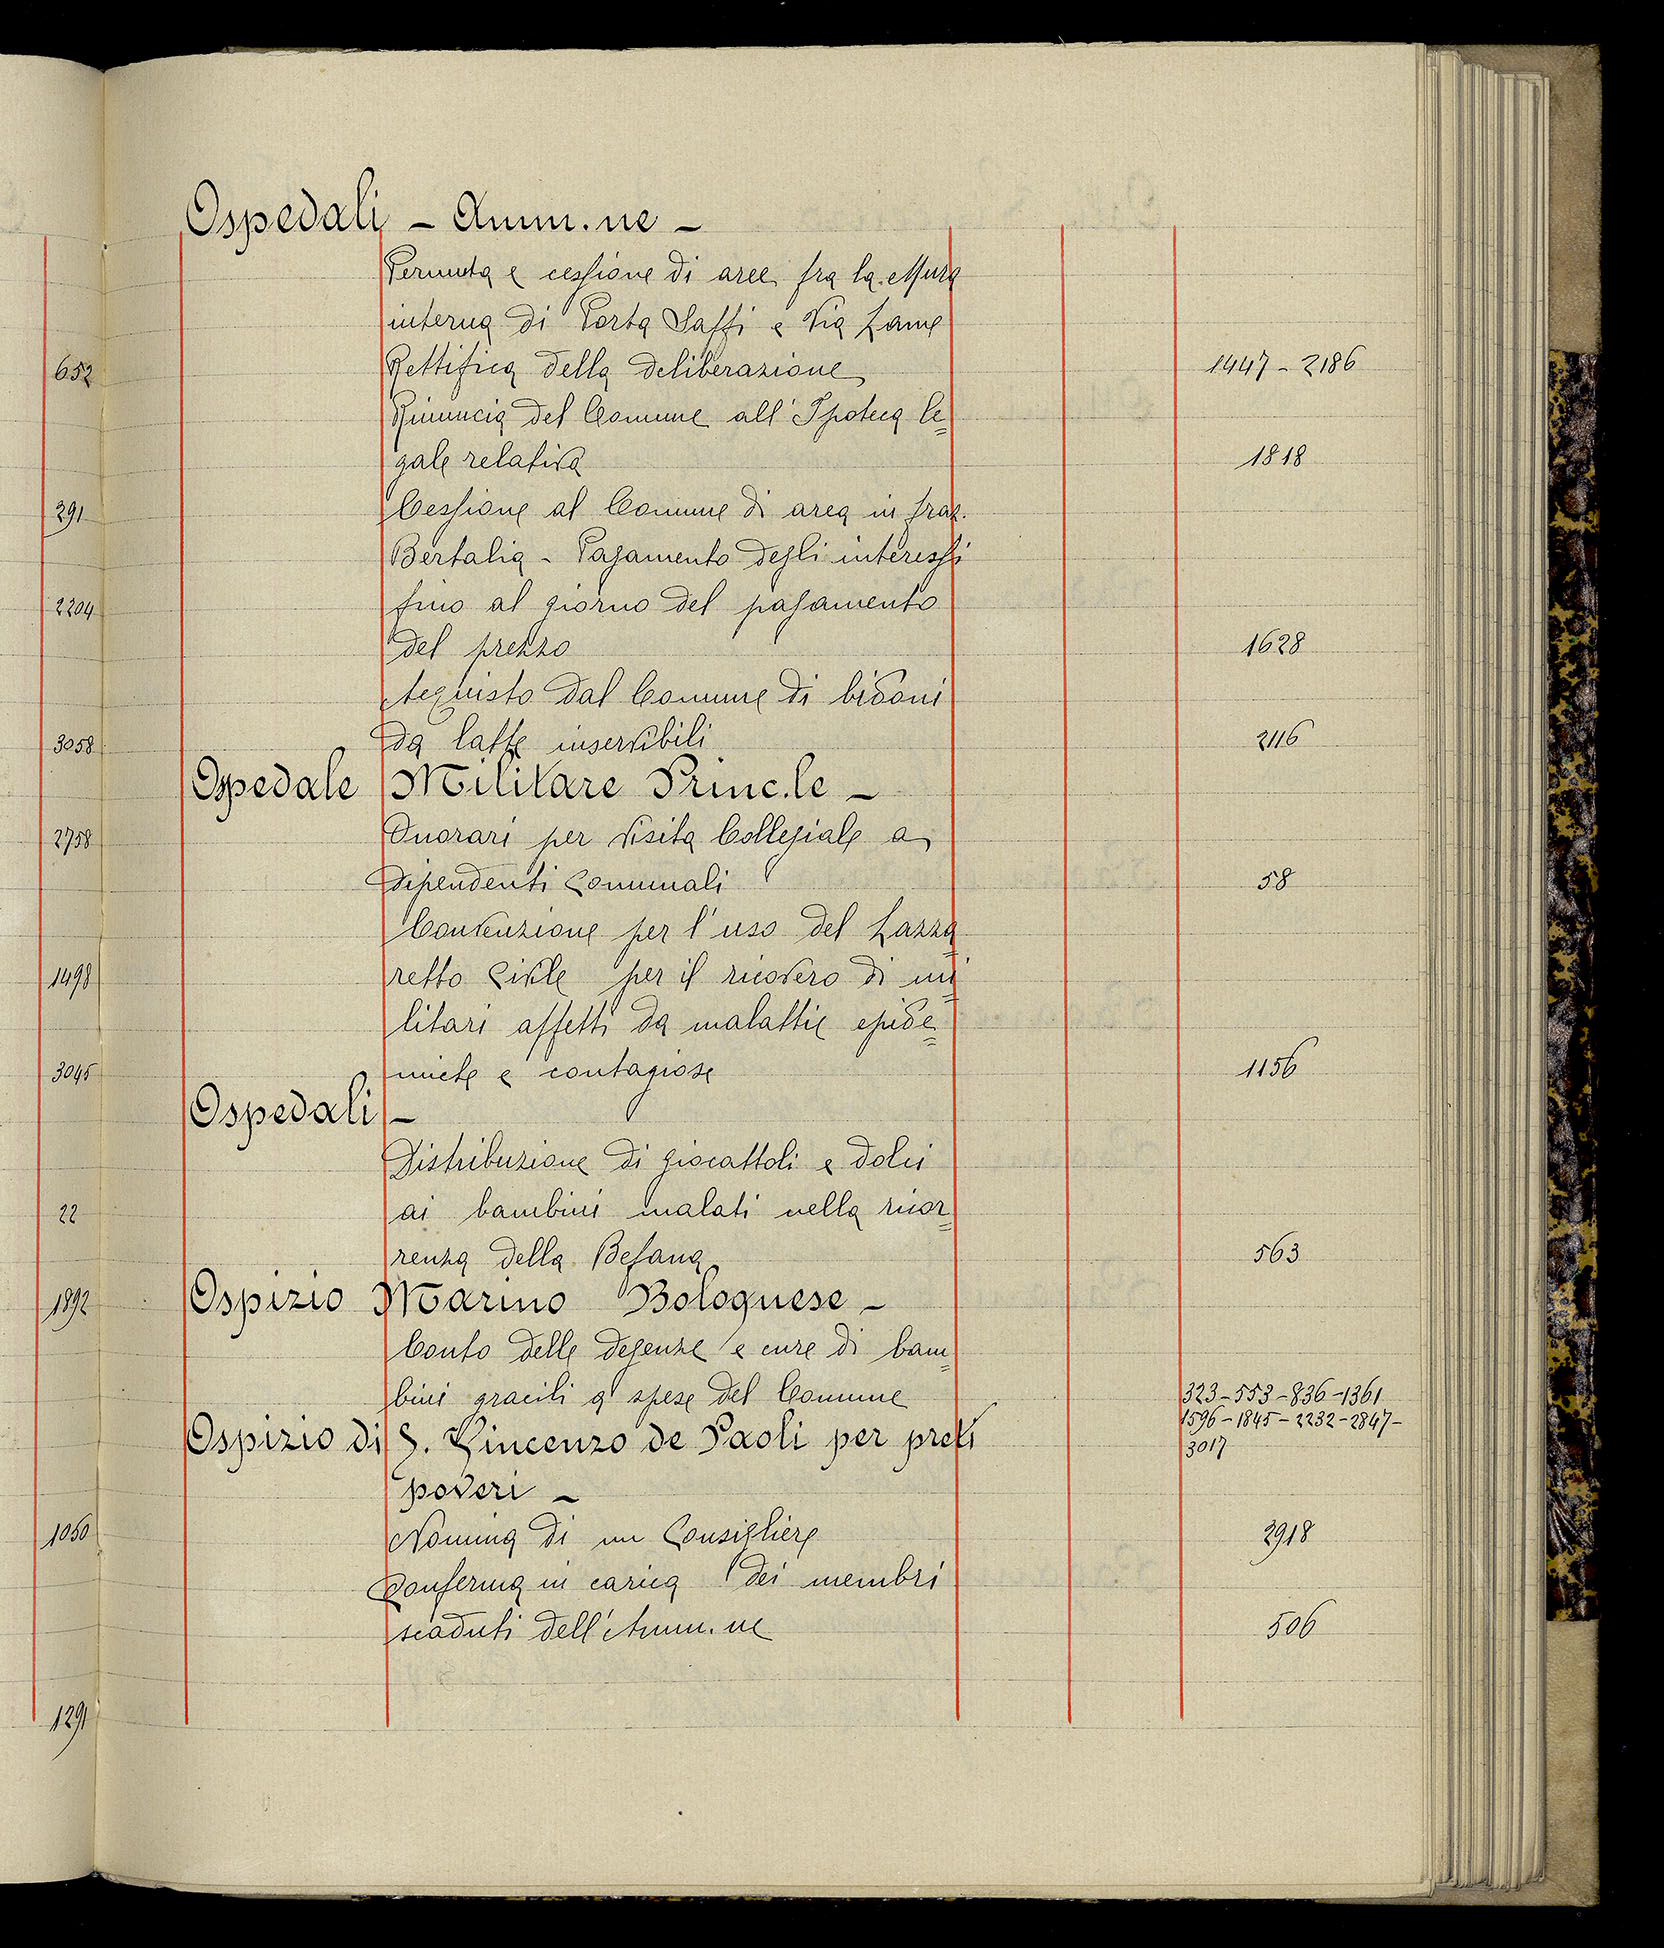 Ospedali - Amm.ne -
Permuta e cessione di aree fra la Mura
interna di Porta Saffi e Via Lame
652
Rettifica della deliberazione 1447 - 2186
Rinuncia del Comune all'Ipoteca le=
gale relativa 1818
291
Cessione al Comune di area in fraz.
Bertalia - Pagamento degli interessi
2204
fino al giorno del pagamento
del prezzo 1628
Acquisto dal Comune di bidoni
3058
da latte inservibili 2116
Ospedale Militare Princ.le -
2758
Onorari per visita Collegiale a
dipendenti Comunali 58
Convenzione per l'uso del Lazza
1498
retto Civile per il ricovero di mi=
litari affetti da malattie epide=
3045
miche e contagiose 1156
Ospedali -
Distribuzione di giocattoli e dolci
22
ai bambini malati nella ricor=
renza della Befana 563
1892
Ospizio Marino Bolognese -
Conto delle degenze e cure di bam=
bini gracili a spese del Comune 323-553-836-1361
1596-1845-2232-2847-
3017
Ospizio di S. Vincenzo de Paoli per preti
poveri -
1050
Nomina di un Consigliere 2918
Conferma in carica dei membri
scaduti dell'Amm.ne 506
1291